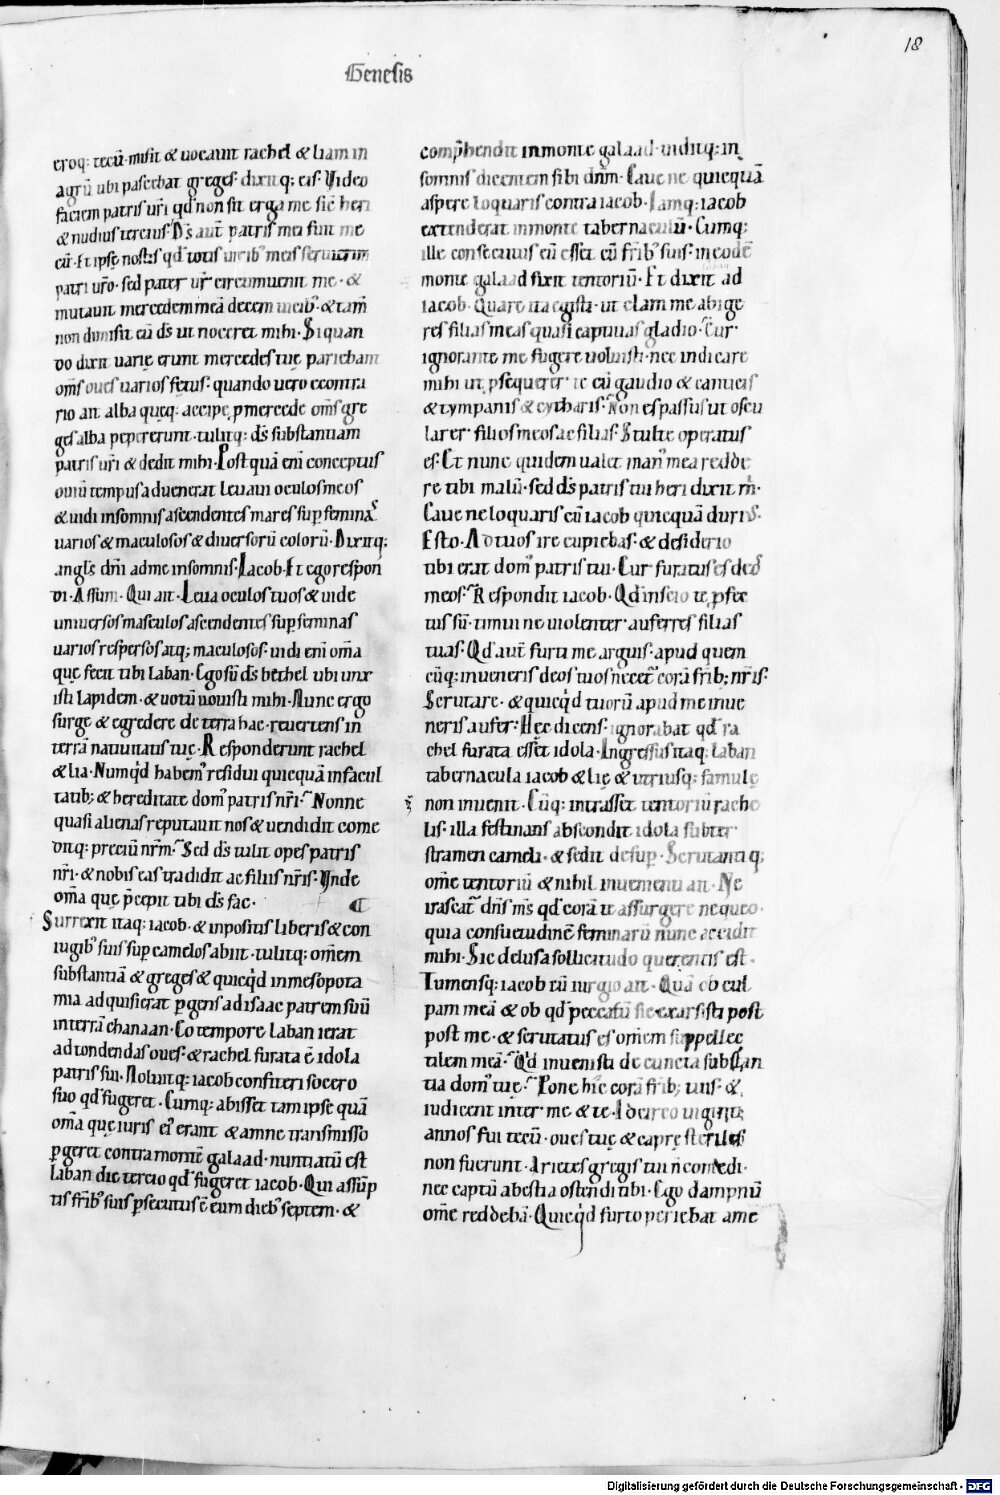 18
Genesis
eroq; tecũ· misit & uocauit rachel & liam in
agrũ ubi pascebat greges· dixitq; eis· Video
faciem patris ur̃i qđ non sit erga me sic̃ heri
& nudius tercius· Ds̃ aut̃ patris mei fuit me
cũ· Et ipse nostis qđ totis uirib; meis seruierim
patri uro· sed pater ur̃ circumuenit me· &
mutauit mercedem meã decem uicib;· & tam̃
non dimisit eũ ds̃ ut noceret mihi· Si quan
do dixit uarie erunt mercedes tue pariebant
om̃s oues uarios fetus· quando uero econtra
rio ait alba queq; accipe p mercede om̃s gre
ges alba pepererunt· tulitq; ds̃ substantiam
patris ur̃i & dedit mihi· Postquã eni conceptus
ouiũ tempus aduenerat leuaui oculos meos
& uidi in somnis ascendentes mares sup feminas
uarios & maculosos & diuersorũ colorũ· Dixitq;
angls̃ dñi ad me in somnis· Iacob· Et ego respon
di· Assum· Qui ait· Leua oculos tuos & uide
uniuersos masculos ascendentes sup feminas
uarios respersos atq; maculosos· uidi eni om̃a
que fecit tibi laban· Ego sũ ds̃ bethel ubi unx
isti lapidem· & uotũ uouisti mihi· Nunc ergo
surge & egredere de terra hac· reuertens in
terrã natiuitatis tue· Responderunt rachel
& lia· Numqđ habem; residui quicquã in facul
tatib; & hereditate dom; patris nr̃i· Nonne
quasi alienas reputauit nos & uendidit come
ditq; preciũ nrm̃· Sed ds̃ tulit opes patris
nr̃i· & nobis eas tradidit ac filiis nr̃is· Vnde
om̃a que pcepit tibi ds̃ fac·
Surrexit itaq; iacob· & inpositis liberis & con
iugib; suis sup camelos abiit· tulitq; om̃em
substantiã & greges & quicqđ in mesopota
mia adquisierat pgens ad isaac patrem suũ
in terrã chanaan· Eo tempore laban ierat
ad tondendas oues· & rachel furata ẽ idola
patris sui· Noluitq; iacob confiteri socero
suo qđ fugeret· Cumq; abisset tam ipse quã
om̃a que iuris ei; erant & amne transmisso
pgeret contra montẽ galaad· nuntiatũ est
laban die tercio qđ fugeret iacob· Qui assũp
tis frib; suis psecutus ẽ eum dieb; septem· &
comp̃hendit in monte galaad· uiditq; in
somnis dicentem sibi dñm· Caue ne quicquã
aspere loquaris contra iacob· Iamq; iacob
extenderat in monte tabernaculũ· Cumq;
ille consecutus eũ esset cũ frib; suis· in eodẽ
monte galaad fixit tentoriũ· Et dixit ad
iacob· Quare ita egisti· ut clam me abige
res filias meas quasi captiuas gladio· Cur
ignorante me fugere uoluisti· nec indicare
mihi ut psequerer te cũ gaudio & canticis
& tympanis & cytharis· Non es passus ut oscu
larer filios meos ac filias· Stulte operatus
es· Et nunc quidem ualet man; mea redde
re tibi malũ· sed ds̃ patris tui heri dixit m·
Caue ne loquaris cũ iacob quicquã duris·
Esto· Ad tuos ire cupiebas· & desiderio
tibi erat dom; patris tui· Cur furatus es deos
meos· Respondit iacob· Qđ inscio te pfec
tus sũ· timui ne uiolenter auferres filias
tuas· Qđ aut̃ furti me arguis· apud quem
cũq; inueneris deos tuos necet̃ corã frib; nr̃is·
Scrutare· & quicqđ tuorũ apud me inue
neris aufer· Hec dicens· ignorabat qđ ra
chel furata esset idola· Ingressus itaq; laban
tabernacula iacob & lie & utriusq; famule
non inuenit· Cũq; intrasset tentoriũ rache
lis· illa festinans abscondit idola subter
stramen cameli· & sedit desup· Scrutantiq;
om̃e tentoriũ & nihil inuenienti ait· Ne
irascat̃ dñs ms̃ qđ corã te assurgere nequeo·
quia consuetudinẽ feminarũ nunc accidit
mihi· Sic delusa sollicitudo querentis est·
Tumensq; iacob cũ iurgio ait· Quã ob cul
pam meã & ob qđ peccatũ sic exarsisti post
post me· & scrutatus es om̃em suppellec
tilem meã· Qđ inuenisti de cuncta substan
tia dom; tue· Pone hic̃ corã frib; tuis· &
iudicent inter me & te· Idcirco uiginti
annos fui tecũ· oues tue & capre steriles
non fuerunt· Arietes gregis tui ñ comedi·
nec captũ a bestia ostendi tibi· Ego dampnũ
om̃e reddebã· Quicqđ furto periebat a me
Digitalisierung gefördert durch die Deutsche Forschungsgemeinschaft - DFG